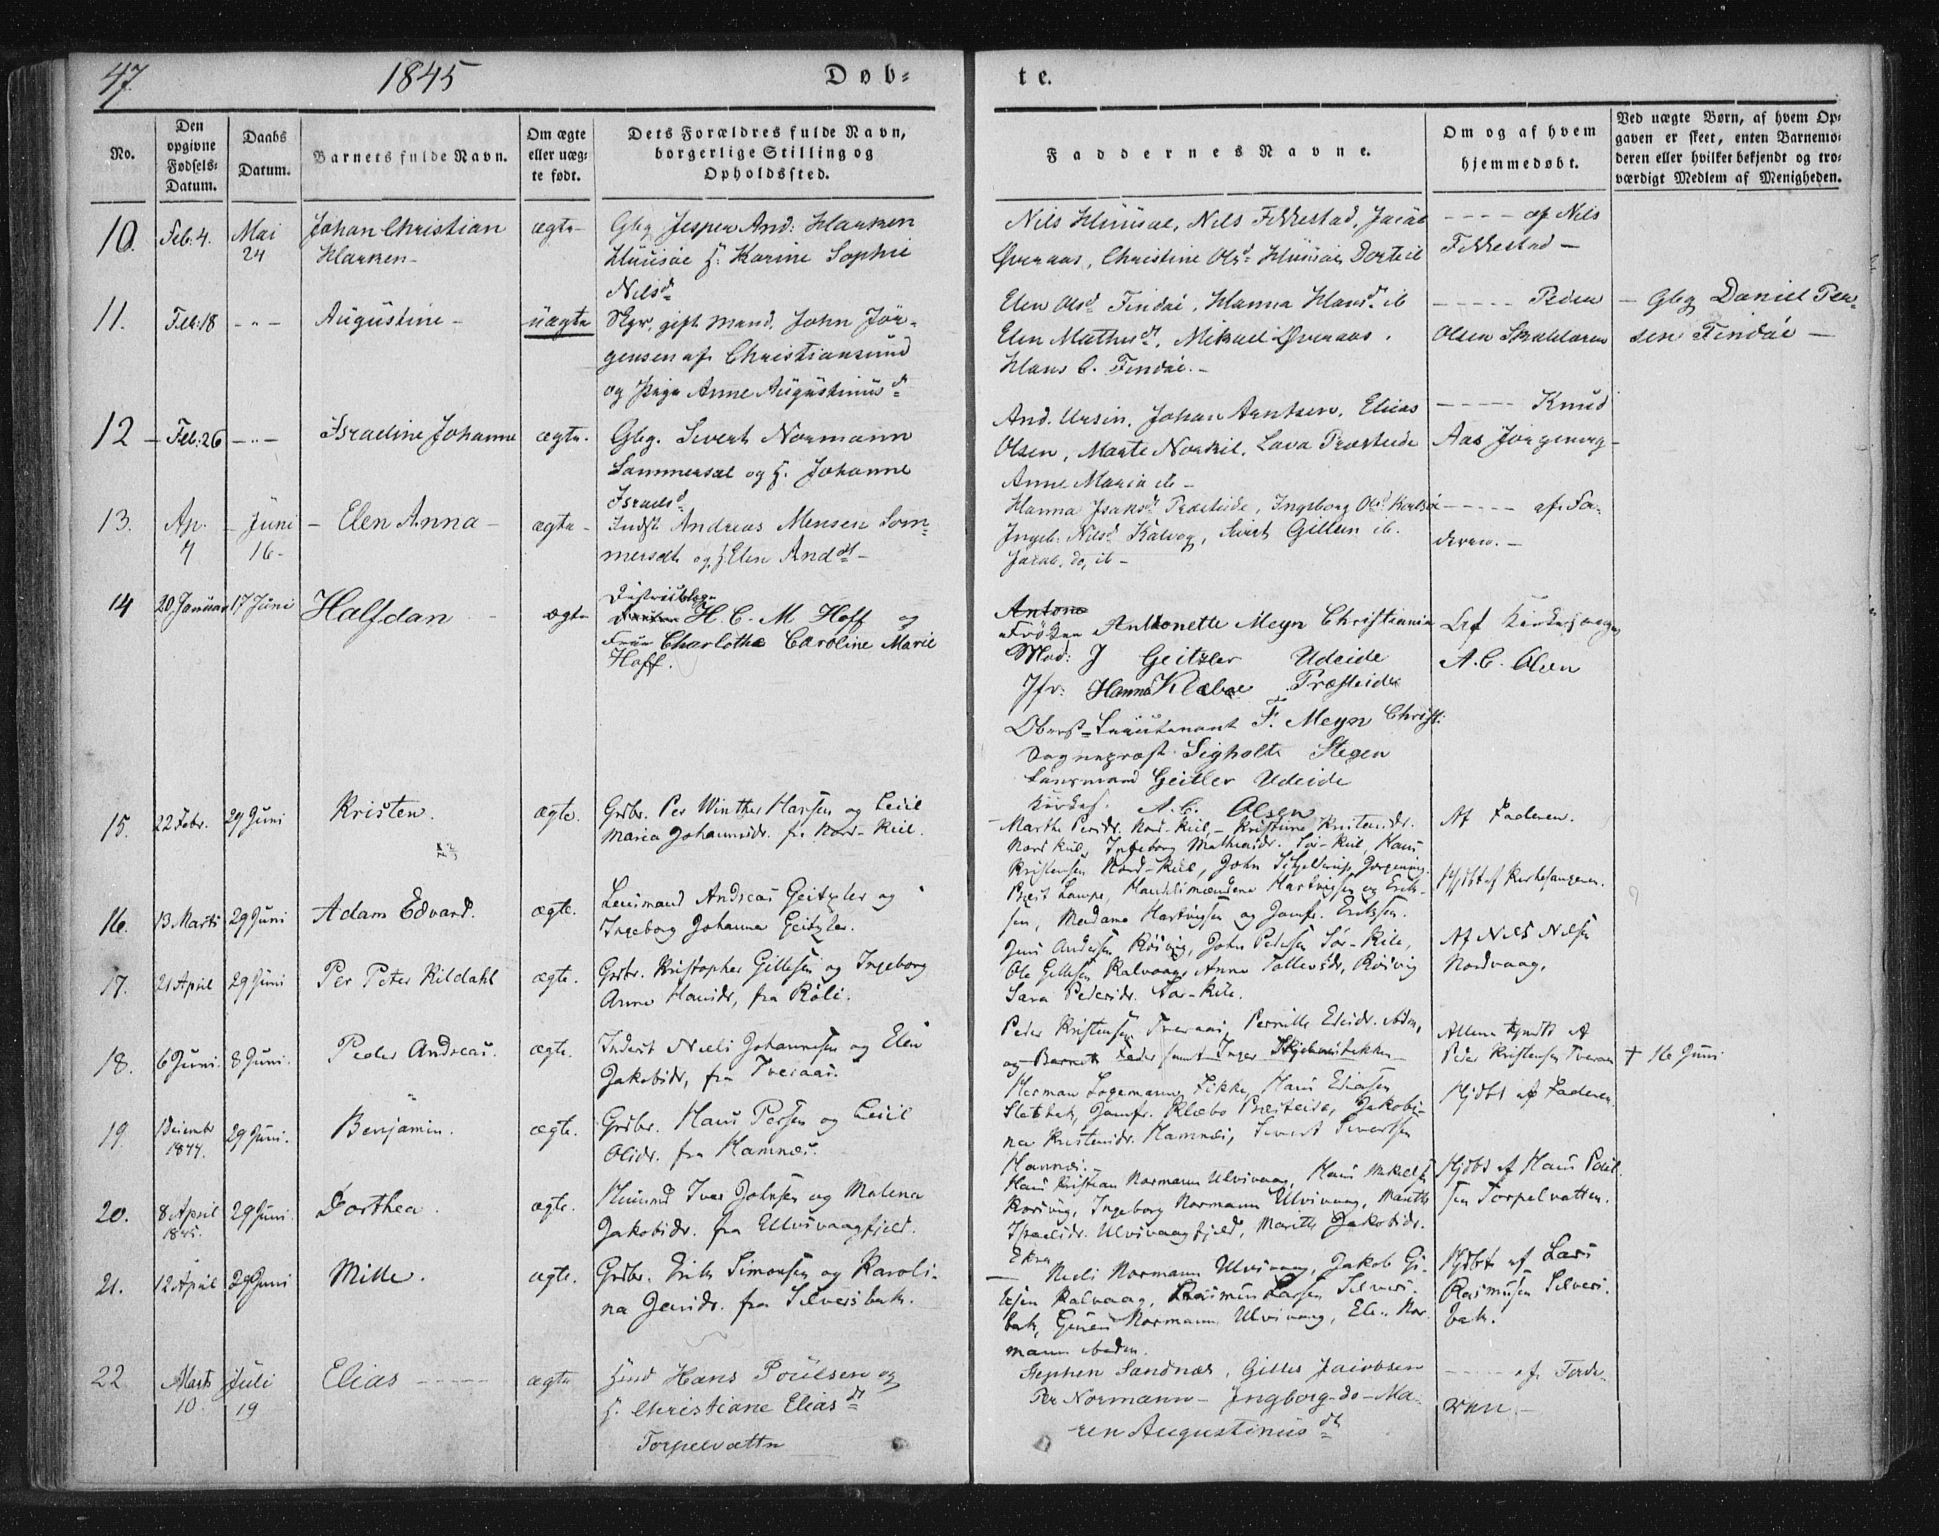 47
1845
Døb-
te.
No.
Den opgivne Fødsels-Datum.
Daabs Datum.
Barnets fulde Navn.
Om ægte eller uæg-te født.
Dets Forældres fulde Navn, borgerlige Stilling og Opholdssted.
Faddernes Navne.
Om og af hvem hjemmedøbt.
Ved uægte Børn, af hvem Op-gaven er skeet, enten Barnemo-deren eller hvilket bekjendt og tro-værdigt Medlem af Menigheden.
10. Feb. 4. Mai 24 Johan Christian Hanken ægte
Karine Sophie
Nilsd
Nils Fikkestad, Jacob
Christine Olsd
af Nils
Fikkestad
11. Feb: 18 Augustine uægte
gift Mand, John Jør-
gensen af Christiansund
og Pige Anne Augustinusd
Elen Olsd Findøe, Hanna Hansd ib
Elen Mathisd, Mikael Øveraas.
Hans C. Findøe.
Peder
Olsen
Gbg Daniel Peer-
sen Findøe
12 Feb: 26 Israeline Johanne ægte
Gbg. Sivert Normann
Sammersæt og H. Johanne
Israelsd
And. Ursin, Johan Arntsen, Elias
Olsen, Marte Norkil, Lava Præsteide
Anne Maria ib
Knud
Aas Jørgenvog
13. Ap. 7 Juni 16 Elen Anna ægte
Indst Andreas Mensen Som-
mersæt og H Elen Andd
Hanna Isaksd Præsteide, Ingeborg Olsd
Ingeb: Nilsd Kalvog, Sivert Gillesen ib.
Jacob do, ib
af Fa-
deren.
14 20 Januar 17 Juni Halfdan ægte
Districtslæge
H. C. M Hoff og
Frue Charlotha Caroline Marie
Hoff.
Antone
Frøken Anttonette Meyn Christiania
Mad: J Geitzler Udeide
Jfr: Hanna Klæboe Præsteide
Oberst-Lieutenant F. Meyn Christ:
Sognepræst Sigholtz Stegen
Lensmand Geitler Udeide
Kirkes. A. C. Olsen
Af Kirkesanger
A. C. Olsen
15. 22 Febr. 29 Juni Kristen. ægte.
Grdbr. Per Winther Hansen og Cecil
Maria Johannesdr. fra Nord-Kiil.
Marthe Persdr. Nord-Kiil, Kristine Kristensdr.
Nordkiil, Ingeborg Mathiasdr. Sør-Kiil, Hans
Kristensen Nord-Kiil, John Schjelderup Jørgenvog.
Af Faderen.
16. 13 Marts 29 Juni Adam Edvard. ægte.
Lensmand Andreas Geitzler og
Ingeborg Johanna Geitzler.
Præst Lampe, Handelsmændene Hartvigsen og Erik-
sen, Madame Hartvigsen og Jomfr. Eriksen.
Hjdbt af Kirkesangeren.
17. 21 April 29 Juni Per Peter Kildahl ægte.
Grdbr. Kristopher Gillesen og Ingeborg
Anne Hansdr, fra Røli.
Jens Andersen Røsvig, John Pedersen Sør-Kile,
Ole Gillesen Kalvaag, Anne Tollevsdr, Røsvig
Sara Pedersdr. Sør-Kile.
Af Nils Nilsen
Nordvaag.
18. 6 Juni. 8 Juni. Peder Andreas. ægte.
Inderst Niels Johannesen og Elen
Jakobsdr, fra Tveraas.
Peder Kristensen Tveraas, Pernille Eliasdr. ibdm,
og Barnets Fader samt Inger
Af
Peder Kristensen Tveraas
† 16 Juni
19. Decembr 1844. 29 Juni. Benjamin. ægte.
Grdbr. Hans Persen og Cecil
Olsdr. fra Hamnes.
Herman Lagemann, Fikke, Hans Eliasen
Sletbak, Jomfr. Klæbo Præsteide, Jakobi-
na Kristensdr. Hamnes, Sivert Sivertsen
Hamnes.
Hjdbt af Faderen.
20. 8 April 1845. 29 Juni. Dorthea. ægte.
Huusmd Iver Johnsen og Malena
Jakobsdr. fra Ulvsvaagfjeld.
Hans Kristian Normann Ulvsvaag, Hans Mikelsen
Rorsvig, Ingeborg Normann Ulvsvaag, Marith
Israelsdr. Ulvsvaagfjeld, Marith Jakobsdr.
Hjdbt af Hans Poul-
sen Torpelvatten.
21. 12 April 29 Juni Mille. ægte.
Grdbr. Erik Simonsen og Karoli-
na Jensdr. fra Silversbak.
Niels Normann Ulvsvaag, Jakob Gi-
lesen Kalvaag, Rasmus Larsen Silvers-
bak, Normann Ulvsvaag, Nor-
mann ibedm.
Hjdbt af Lars
Rasmusen Silvers-
bak.
22. Marts 10 Juli 19 Elias ægte
Hans Poulsen og
H. Christiane Eliasd
Torpelvattn
Stephen Sandnæs, Gilles Jacobsen
Per Normann - Ingborg do - Ma-
ren Augustinusd
af Fade-
ren